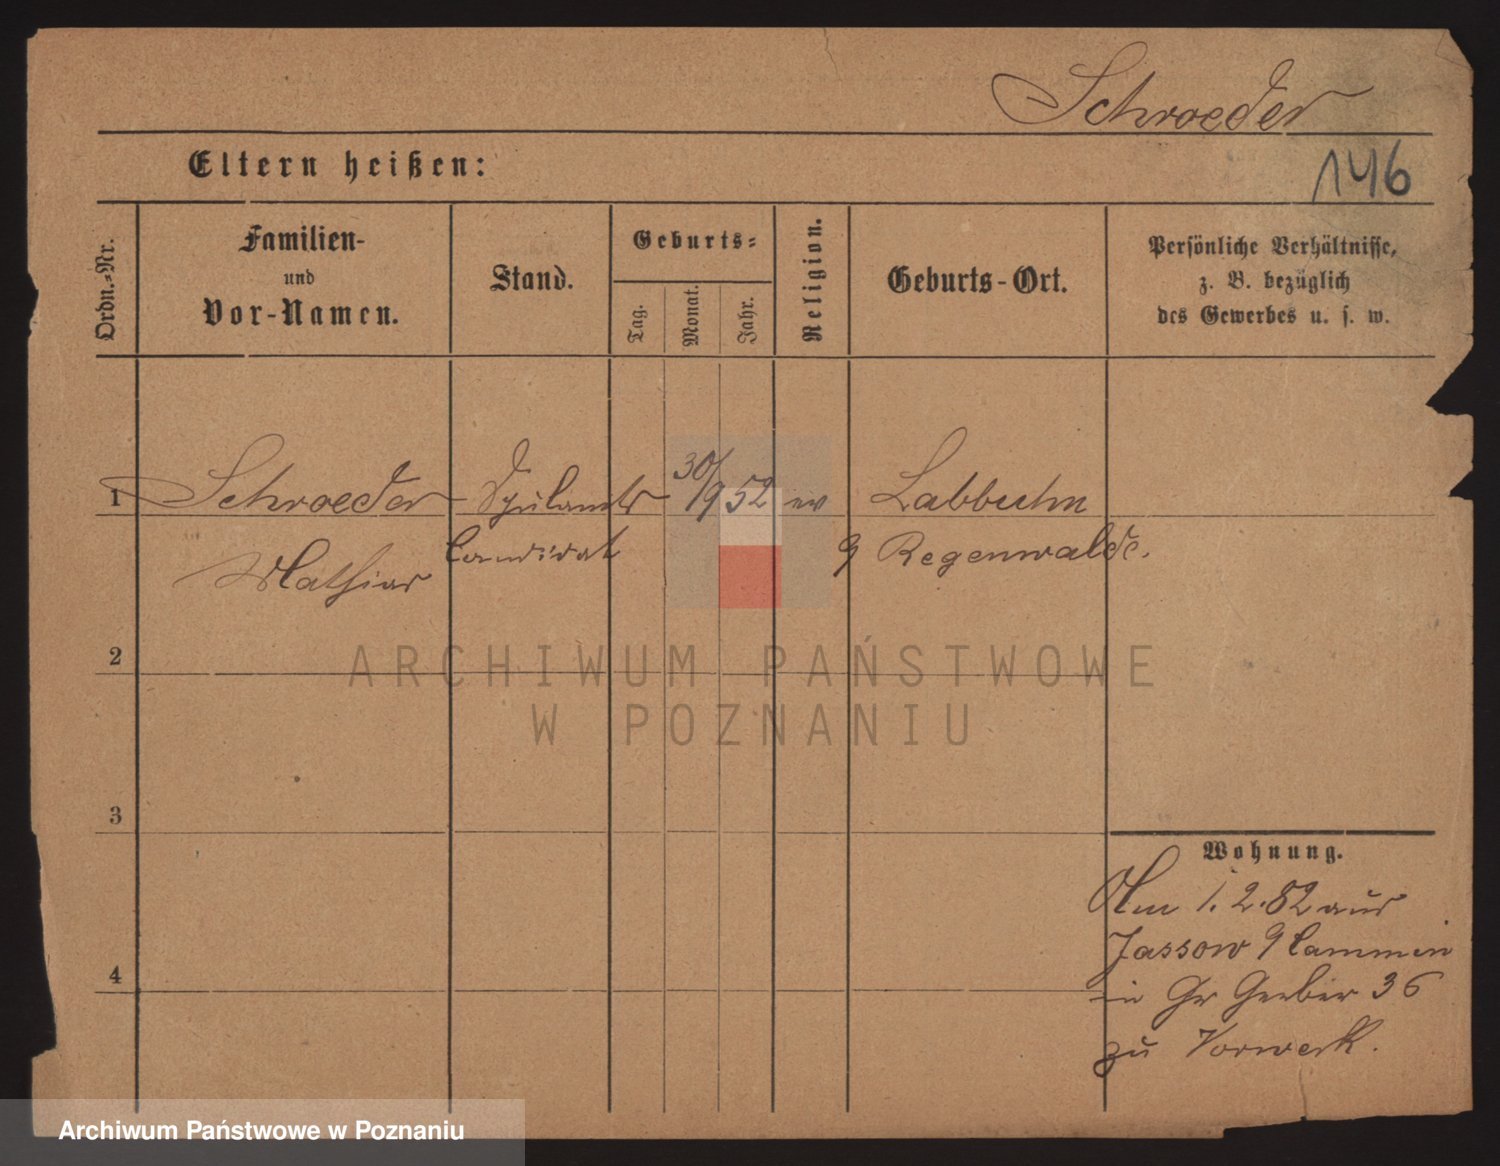 Schroeder
Eltern heißen:
146
Ordn.-Nr.
Familien-
und
Vor-Namen.
Stand.
Geburts-
Tag.
Monat.
Jahr.
Religion.
Geburts-Ort.
Persönliche Verhältnisse,
z. B. bezüglich
des Gewerbes u. s. w.
1 Schroeder Schulamts 30/9 52 ev Labbuhn
Mathias Candidat Regenwalde.
2
ARCHIWUM PAŃSTWOWE
W POZNANIU
3
Wohnung.
Am 1.2.82 aus
Jassow Cammin
4
in Gr Gerber 36
zu Vorwerk.
Archiwum Państwowe w Poznaniu